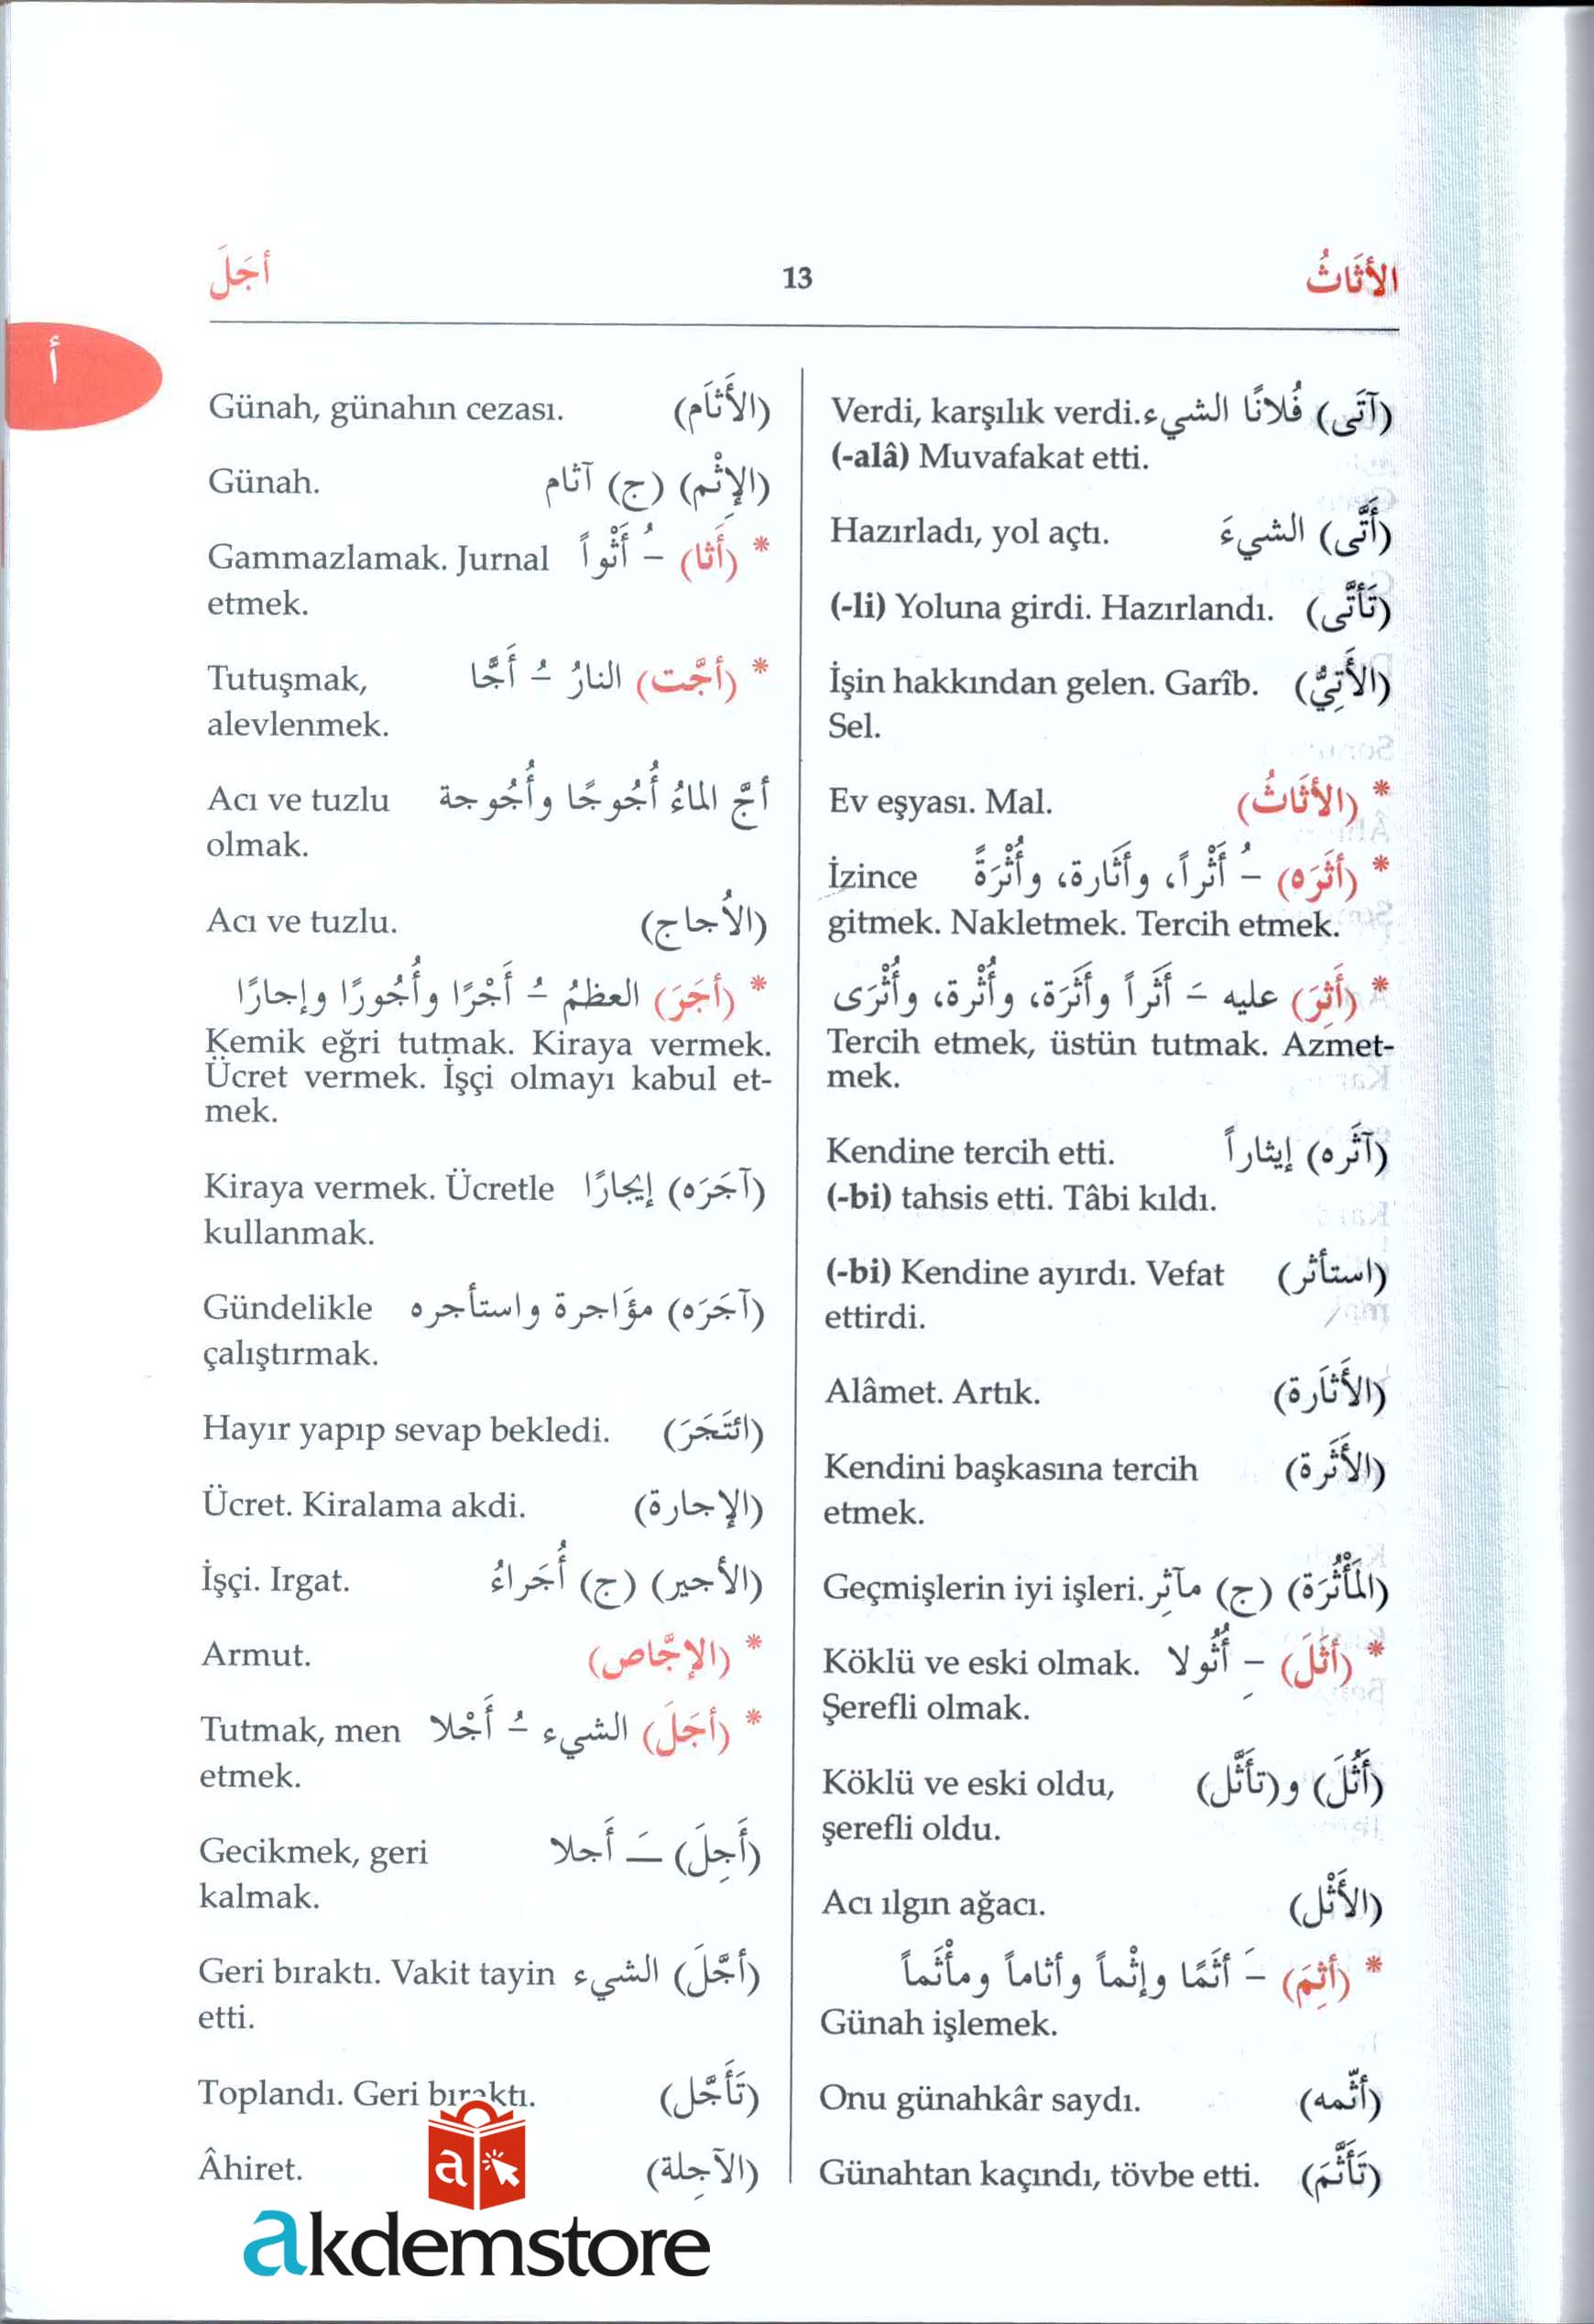 الأثَاثُ 13 أجَلَ
أ
(آتَى) فُلانًا الشيء Verdi, karşılık verdi.
(-alâ) Muvafakat etti.
(أَتَّى) الشيءَ Hazırladı, yol açtı.
(تَأتَّى) (-li) Yoluna girdi. Hazırlandı.
(الأَتِيُّ) İşin hakkından gelen. Garîb.
Sel.
* (الأثَاثُ) Ev eşyası. Mal.
* (أثَرَه) –ُ أَثْراً، وأثَارة، وأُثْرَةً İzince
gitmek. Nakletmek. Tercih etmek.
* (أَثِرَ) عليه –َ أَثَراً وأَثَرَة، وأُثْرة، وأُثْرَى
Tercih etmek, üstün tutmak. Azmet-
mek.
(آثَره) إيثاراً Kendine tercih etti.
(-bi) tahsis etti. Tâbi kıldı.
(استأثر) (-bi) Kendine ayırdı. Vefat
ettirdi.
(الأَثاَرة) Alâmet. Artık.
(الأَثَرة) Kendini başkasına tercih
etmek.
(المَأْثُرَة) (ج) مآثِر Geçmişlerin iyi işleri.
* (أثَلَ) –ِ أُثُولا Köklü ve eski olmak.
Şerefli olmak.
(أَثُلَ) و(تأثَّل) Köklü ve eski oldu,
şerefli oldu.
(الأَثْل) Acı ılgın ağacı.
* (أثِمَ) –َ أثَمًا وإثْماً وأثاماً ومأْثَماً
Günah işlemek.
(أثَّمه) Onu günahkâr saydı.
(تَأَثَّمَ) Günahtan kaçındı, tövbe etti.
(الأَثاَم) Günah, günahın cezası.
(الإِثْم) (ج) آثام Günah.
* (أَثا) –ُ أَثْواً Gammazlamak. Jurnal
etmek.
* (أجَّت) النارُ –ُ أَجَّا Tutuşmak,
alevlenmek.
أجَّ الماءُ أُجُوجًا وأُجُوجة Acı ve tuzlu
olmak.
(الأُجاج) Acı ve tuzlu.
* (أجَرَ) العظمُ –ُ أَجْرًا وأُجُورًا وإجارًا
Kemik eğri tutmak. Kiraya vermek.
Ücret vermek. İşçi olmayı kabul et-
mek.
(آجَرَه) إيجارًا Kiraya vermek. Ücretle
kullanmak.
(آجَرَه) مؤَاجرة واستأجره Gündelikle
çalıştırmak.
(ائتَجَرَ) Hayır yapıp sevap bekledi.
(الإجارة) Ücret. Kiralama akdi.
(الأجير) (ج) أُجَراءُ İşçi. Irgat.
* (الإجَّاص) Armut.
* (أجَلَ) الشيء –ُ أَجْلا Tutmak, men
etmek.
(أَجِلَ) –َ أَجلا Gecikmek, geri
kalmak.
(أجَّلَ) الشيء Geri bıraktı. Vakit tayin
etti.
(تَأَجَّل) Toplandı. Geri bıraktı.
(الآجِلة) Âhiret.
a
akdemstore